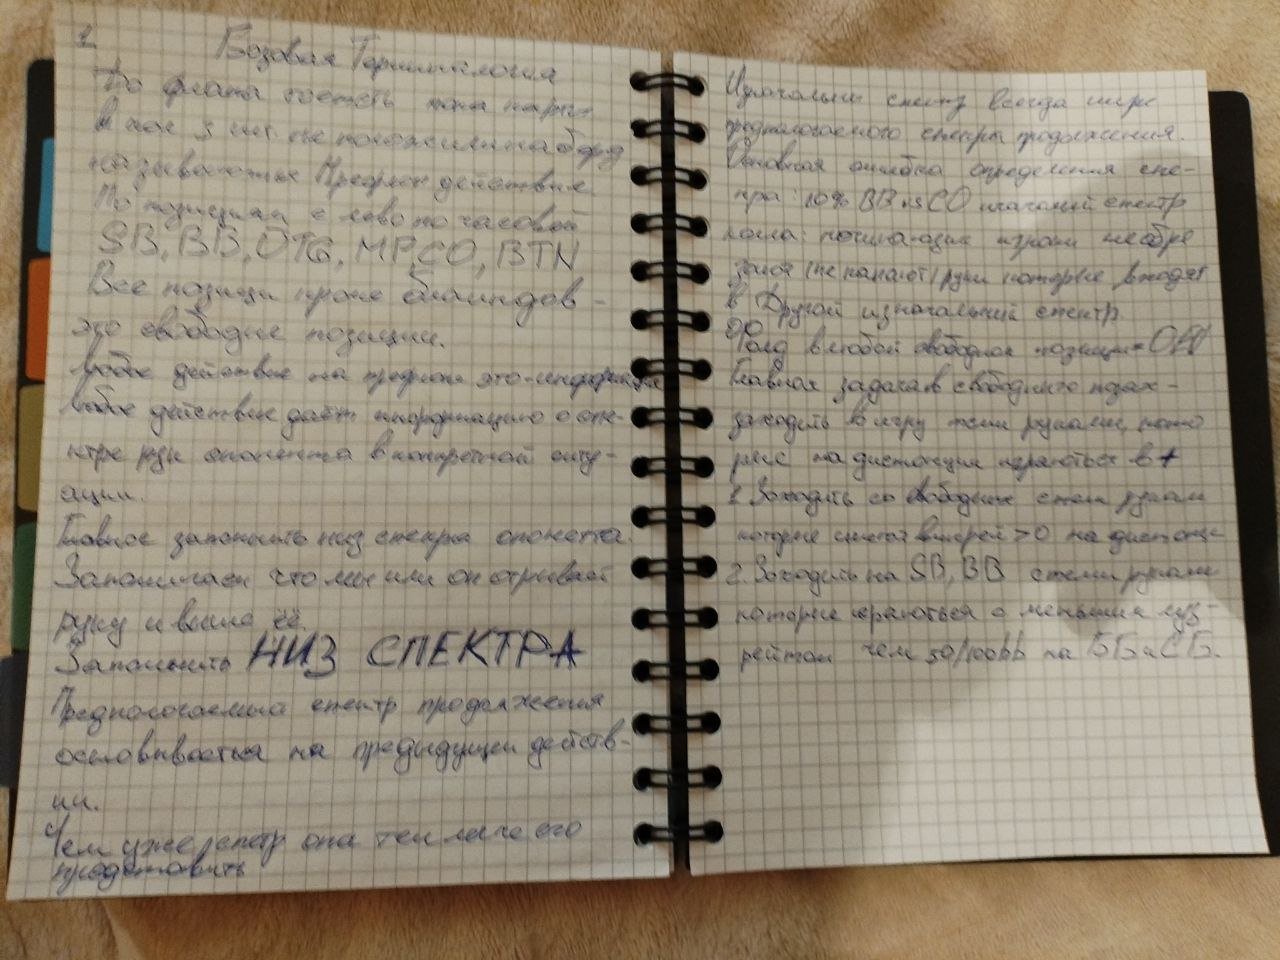 1.
Базовая Терминалогия
До флопа тоесть пока карты
называються Префлоп действие
По позициям с лево по часовой
SB, BB, UTG, MP, CO, BTN
Все позиции кроме блаиндов -
это свободные позиции.
Любое действие на префлопе это-информация
Любое действие даёт информацию о спе-
ктре руки опонента в конкретной ситу-
ации.
Главное запомнить низ спектра опонетта.
Запоминаем что мы или он открывает
руку и выше её.
Запомнить НИЗ СПЕКТРА
Предпологаемый спектр продолжения
основывваеться на предыдущем действ-
ии.
Чем уже спетр опа тем легче его
представить
Изначальный спектр всегда шире
предпологаемого спектра продолжения.
Основная ошибка определения спе-
тра: 10% BB vs CO началный спектр
кола: начинающие игроки необре
заюся (не капают) руки которые входят
в Другой изначальный спектр.
Фолд в любой свободной позиции = 0
Главная задача в свободных позах -
заходить в игру теми руками, кото
рые на дистанции играються в +
1. Заходить со свободных с теми руками
которые имеют винрей >0 на дистанци
2. Заходить на SB, BB с теми руками
которые играються с меньшим луз-
рейтом чем 50/100bb на ББ и СБ.